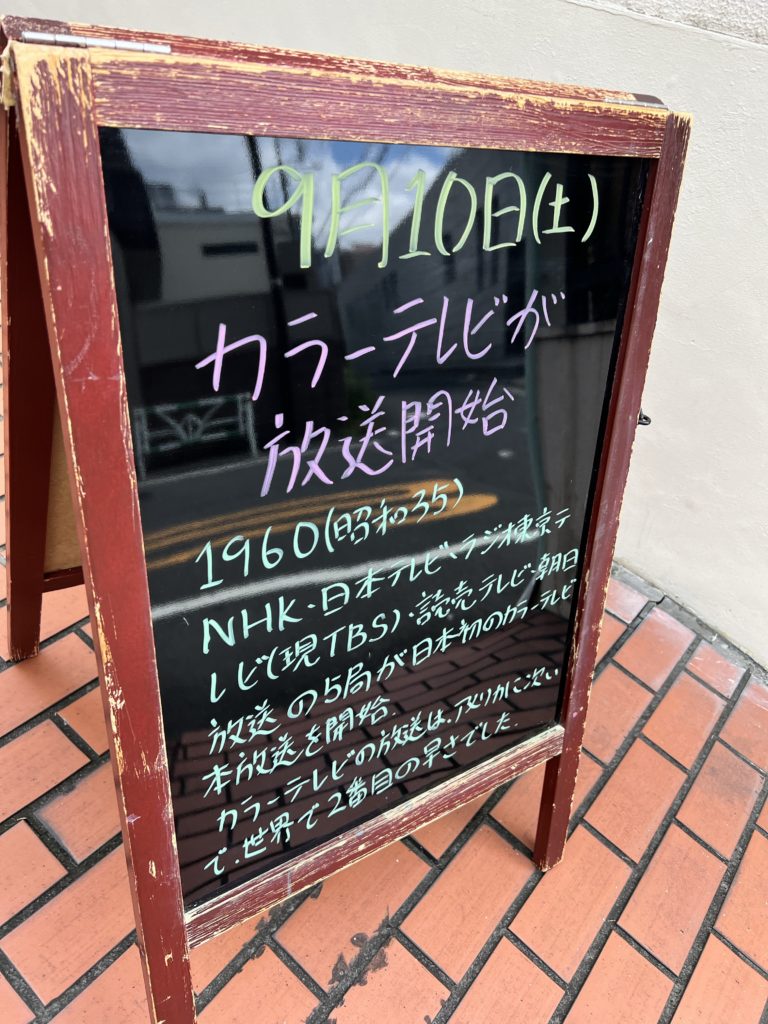 9月10日(土)
カラーテレビが
放送開始
1960(昭和35)
NHK・日本テレビ、ラジオ東京テ
レビ(現TBS)・読売テレビ・朝日
放送の5局が日本初のカラーテレビ
本放送を開始
カラーテレビの放送は、アメリカに次い
で、世界で2番目の早さでした.